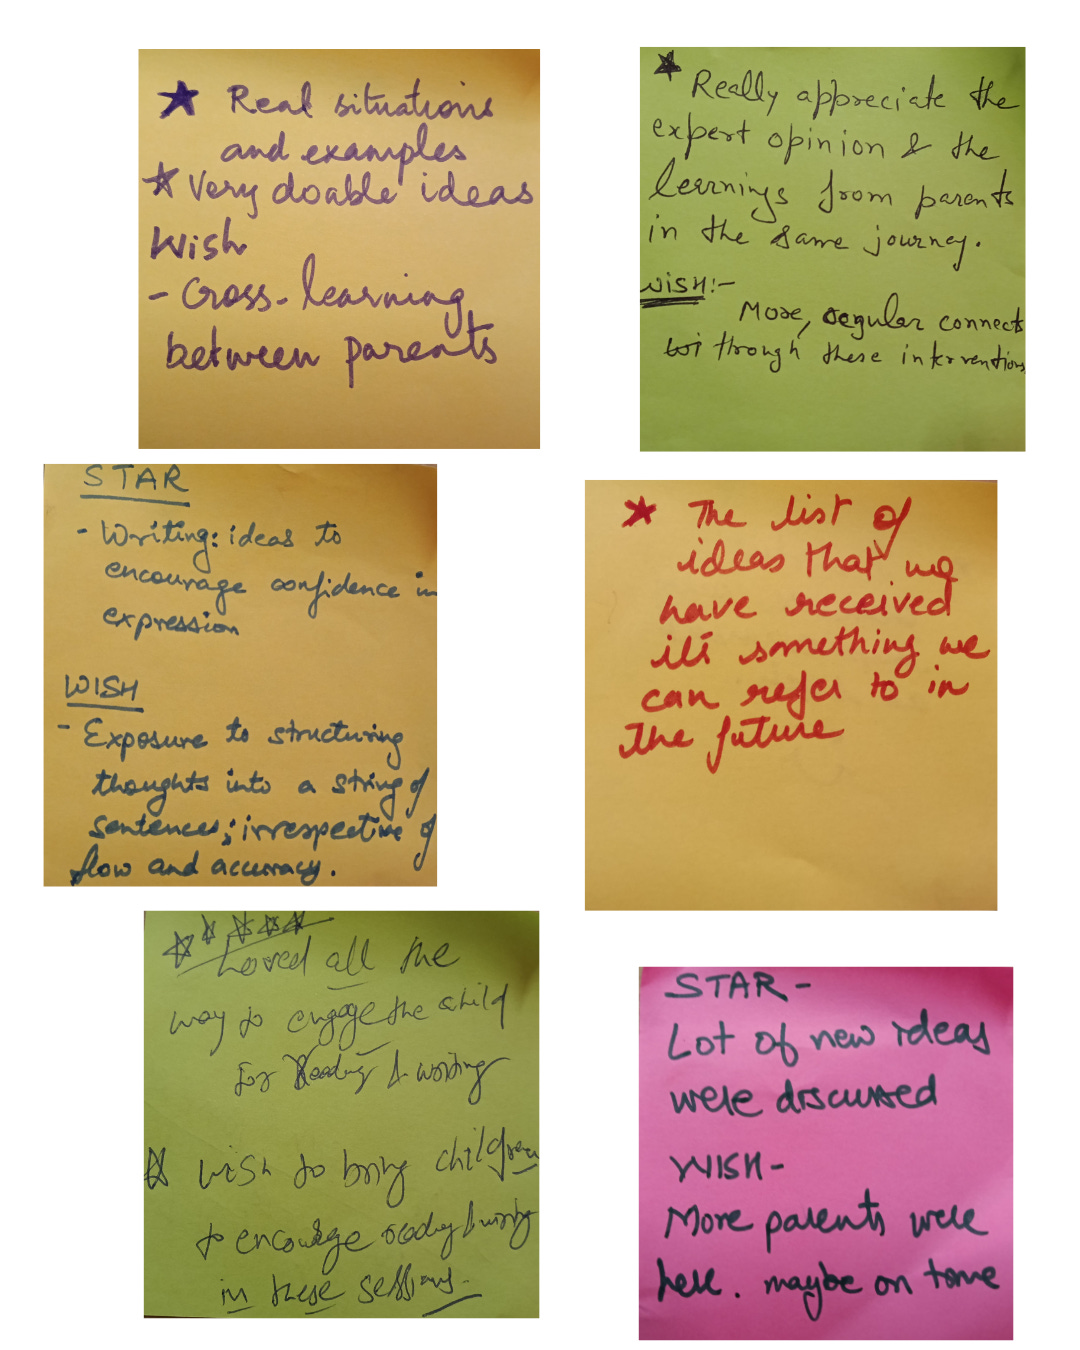 ★ Real situations
and examples
★ Very doable ideas
Wish
- Cross-learning
between parents
★ Really appreciate the
expert opinion & the
learnings from parents
in the same journey.
WISH:-
More, regular connects
through these interventions
STAR
- Writing: ideas to
encourage confidence in
expression
WISH
- Exposure to structuring
thoughts into a string of
sentences; irrespective of
flow and accuracy.
★ The list of
ideas that we
have received
it's something we
can refer to in
the future
☆☆☆☆☆
Loved all the
way to engage the child
for Reading & writing
☆ wish to bring children
to encourage reading & writing
in these sessions.
STAR -
Lot of new ideas
were discussed
WISH -
More parents were
here. maybe on tome